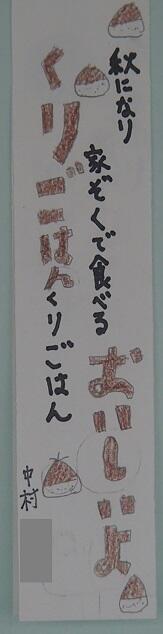 くりごはん
おいしいよ
秋になり
家ぞくで食べる
くりごはん
中村